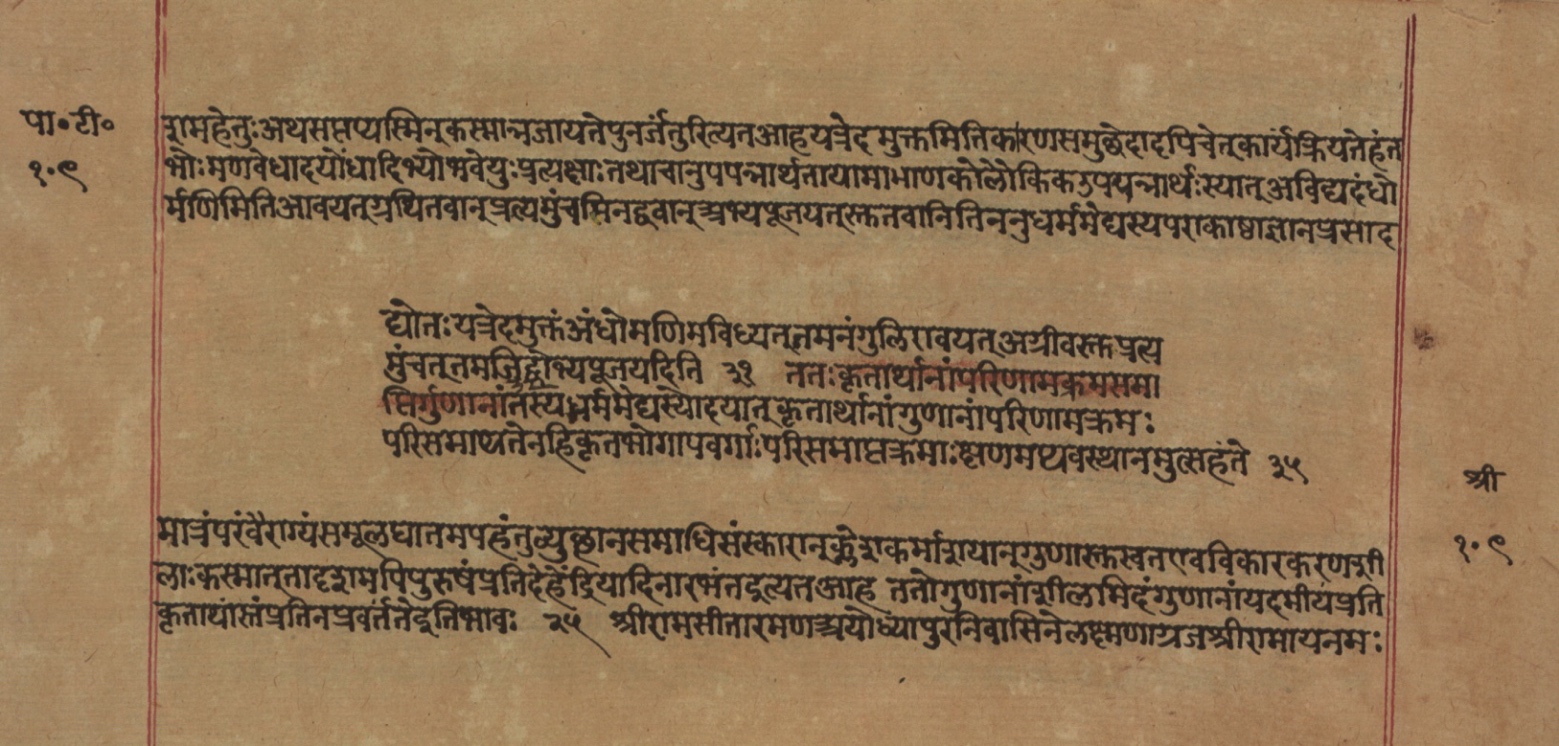 पा॰टी॰
१०९
शमहेतुःअथसत्यप्यस्मिन्कस्मान्नजायतेपुनर्जंतुरित्यतआहयत्रेदमुक्तमितिकारणसमुछेदादपिचेत्कार्यंक्रियतेहंत
भोःमणवेधादयोंधादिभ्योभवेयुःप्रत्यक्षाःतथाचानुपपन्नार्थतायामाभाणकोलौकिकउपपन्नार्थःस्यात्अविद्यदंधो
मणिमितिआवयत्ग्रथितवान्प्रत्यमुंचत्पिनद्धवान्अभ्यपूजयत्स्तुतवानितिननुधर्ममेद्यस्यपराकाष्ठाज्ञानप्रसाद
द्योतःयत्रेदमुक्तंअंधोमणिमविध्यत्तमनंगुलिरावयत्अग्रीवस्तप्रत्य
मुंचत्तमजिह्वोभ्यपूजयदिति ३१ ततःकृतार्थानांपरिणामक्रमसमा
प्तिर्गुणानांतस्यधर्ममेद्यस्योदयात्कृतार्थानांगुणानांपरिणामक्रमः
परिसमाप्यतेनहिकृतभोगापवर्गाःपरिसमाप्तक्रमाःक्षणमप्यवस्थातुमुत्सहंते ३५
श्री
१०९
मात्रंपरंवैराग्यंसमूलघातमपहंतुव्युत्थानसमाधिसंस्कारान्क्लेशकर्माशयान्गुणास्तुस्वतएवविकारकरणशी
लाःकस्मात्तादृशमपिपुरुषंप्रतिदेहेंद्रियादिनारभंतइत्यतआह ततोगुणानांशीलमिदंगुणानांयदमीयंप्रति
कृतार्थास्तंप्रतिनप्रवर्ततेइतिभावः २५ श्रीरामसीतारमणअयोध्यापुरनिवासिनेलक्ष्मणाग्रजश्रीरामायनमः